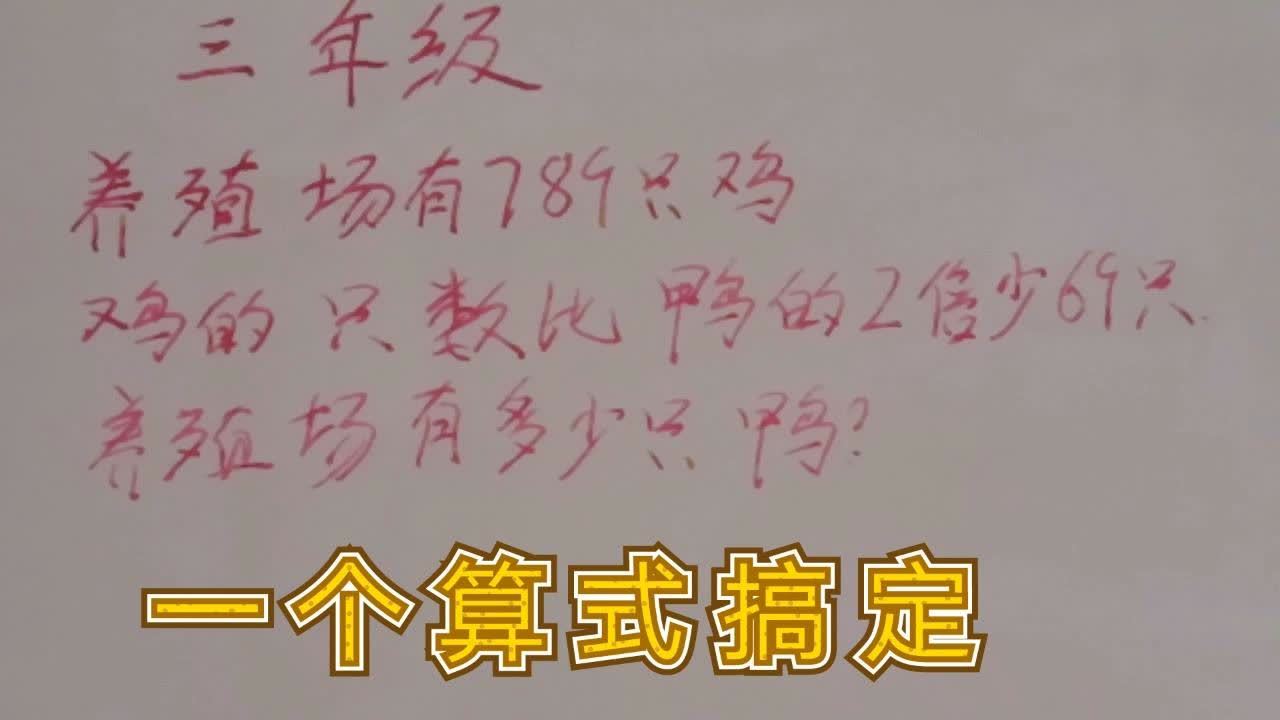 三年级
养殖场有789只鸡
鸡的只数比鸭的2倍少69只.
养殖场有多少只鸭?
一个算式搞定